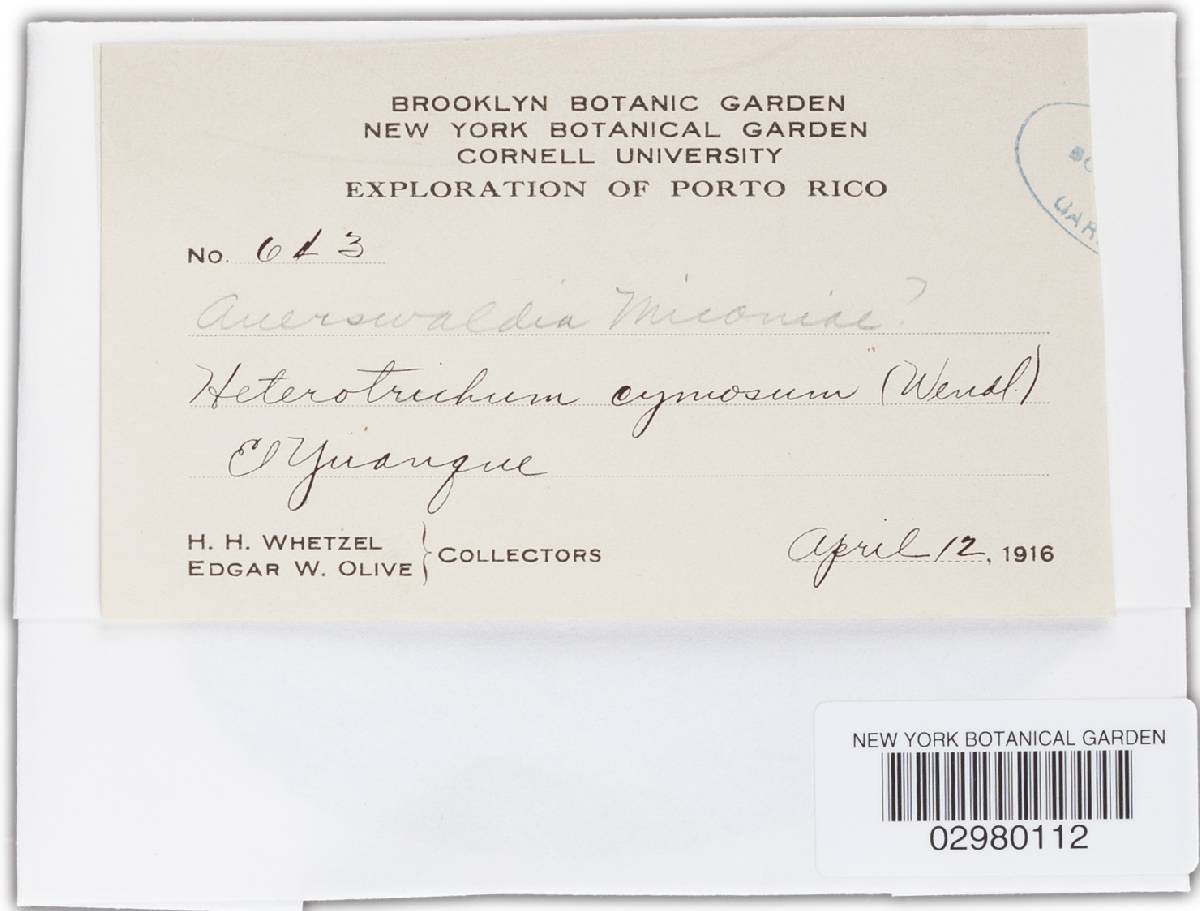 BROOKLYN BOTANIC GARDEN
NEW YORK BOTANICAL GARDEN
CORNELL UNIVERSITY
EXPLORATION OF PORTO RICO
No. 613
Auerswaldia Miconiae?
Heterotrichum cymosum (Wendl)
El Yuanque
H. H. WHETZEL
EDGAR W. OLIVE } COLLECTORS
April 12, 1916
NEW YORK BOTANICAL GARDEN
02980112